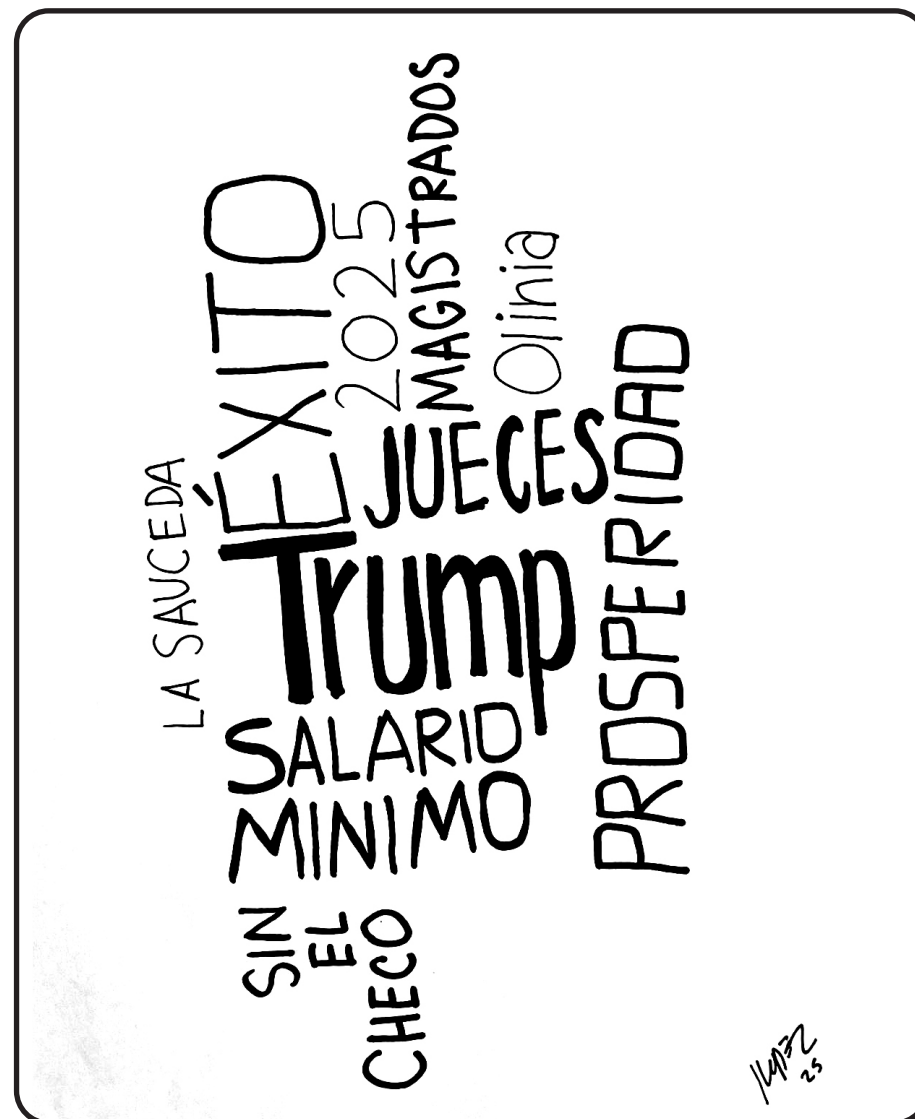 LA SAUCEDA
ÉXITO
2025
MAGISTRADOS
Olinia
JUECES
Trump
PROSPERIDAD
SALARIO
MINIMO
SIN
EL
CHECO
25